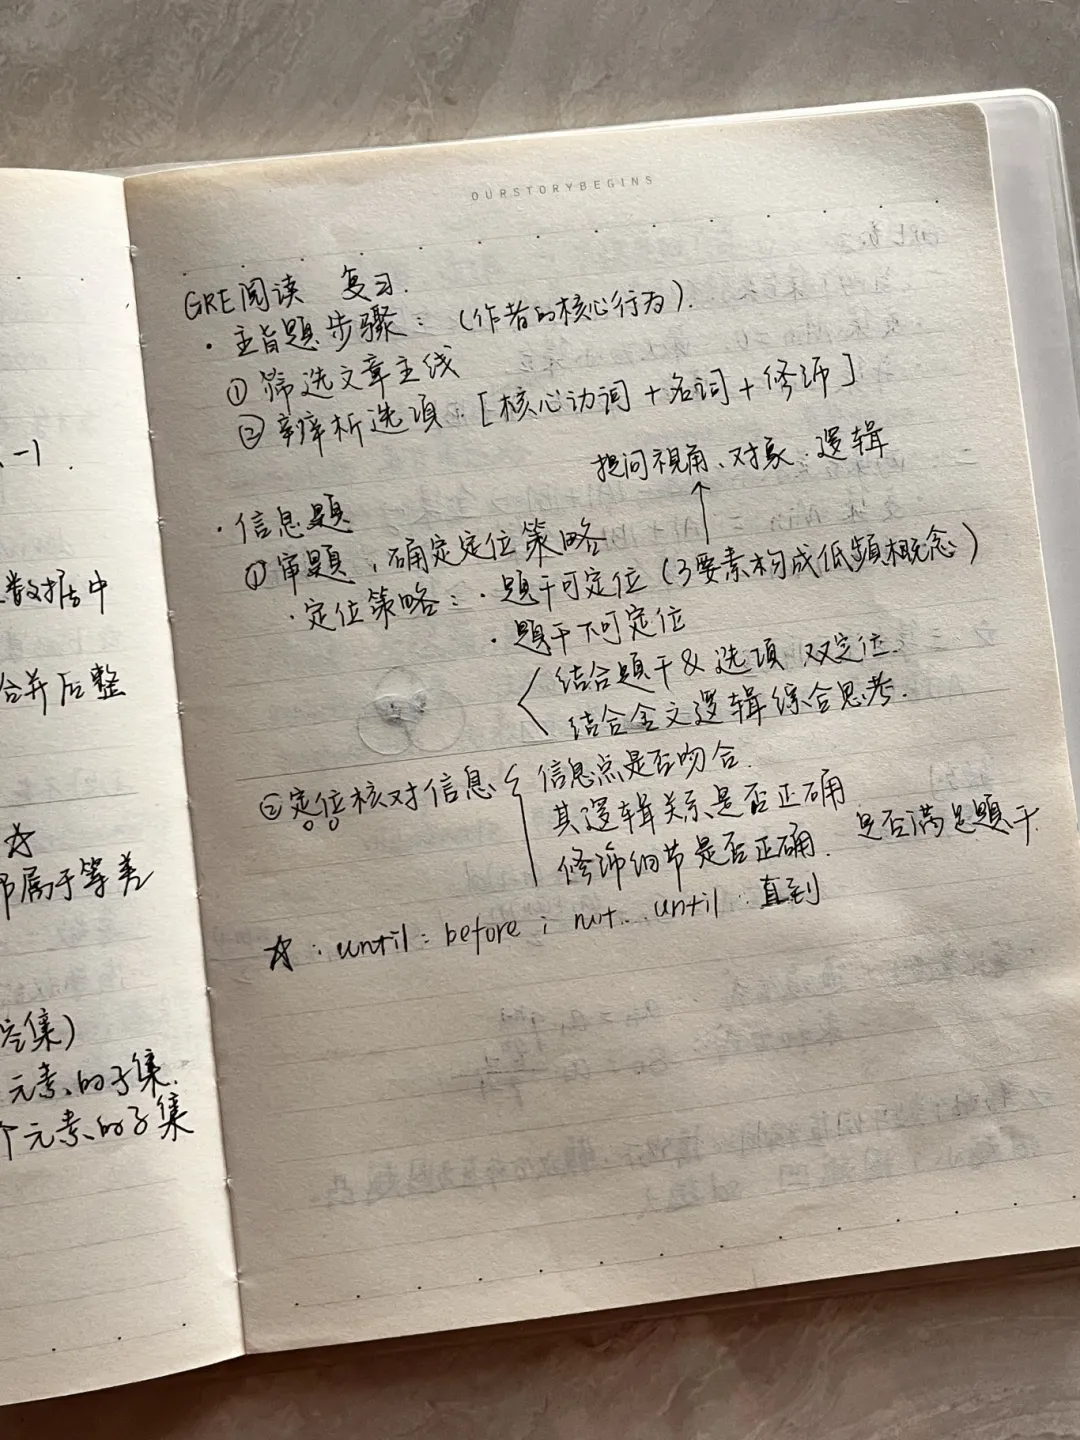 -1.
数据中
合并后整
☆
属于等差
空集)
元素的子集.
个元素的子集
OURSTORYBEGINS
GRE阅读 复习.
· 主旨题步骤: (作者的核心行为).
① 筛选文章主线
② 辨析选项: [核心动词 + 名词 + 修饰]
提问视角、对象、逻辑
↑
· 信息题
① 审题, 确定定位策略
· 定位策略: · 题干可定位 (3要素构成低频概念)
· 题干不可定位
结合题干 & 选项 双定位.
结合全文逻辑综合思考.
② 定位核对信息 { 信息点是否吻合.
其逻辑关系是否正确
修饰细节是否正确. 是否满足题干.
☆: until: before ; not... until: 直到